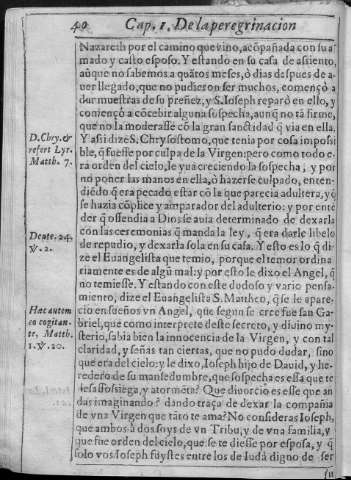 40 Cap. 1. De la peregrinacion
Nazareth por el camino que vino, acõpañada con su a
mado y casto esposo. Y estando en su casa de assiento,
aũque no sabemos a quãtos meses, ò dias despues de a-
uer llegado, que no pudieron ser muchos, començò a
dar muestras de su preñez, y S. Ioseph reparò en ello, y
començò a cõcebir alguna sospecha, aunq̃ no tã firme,
que no la moderasse cõ la gran sanctidad q̃ via en ella.
Y assi dize S. Chrysostomo, que tenia por cosa impossi
ble, q̃ fuesse por culpa de la Virgen: pero como todo e-
ra orden del cielo, le yua creciendo la sospecha, y por
no poner las manos en ella, ò hazerse culpado, enten-
diẽdo q̃ era pecado estar cõ la que parecia adultera, y q̃
se hazia cõplice y amparador del adulterio: y por ente
der q̃ offendia a Dios se auia determinado de dexarla
con las ceremonias q̃ manda la ley, q̃ era darle libelo
de repudio, y dexarla sola en su casa. Y esto es lo q̃ di-
ze el Euangelista que temio, porque el temor ordina-
riamente es de algũ mal: y por esto le dixo el Angel, q̃
no temiesse. Y estando con este dudoso y vario pensa-
miento, dize el Euangelista S. Mattheo, q̃ se le apare-
cio en sueños vn Angel, que segun se cree fue san Ga-
briel, que como interprete deste secreto, y diuino my-
sterio, sabia bien la innocencia de la Virgen, y con tal
claridad, y señas tan ciertas, que no pudo dudar, sino
que era del cielo: y le dixo, Ioseph hijo de Dauid, y he-
redero de su mansedumbre, que sospecha es essa que te
desassossiega, y atormẽta? Que diuorcio es esse que an
das imaginando? dando traça de dexar la compañia
de vna Virgen que tãto te ama? No consideras Ioseph,
que ambos à dos soys de vn Tribu, y de vna familia, y
que fue orden del cielo, que se te diesse por esposa, y q̃
solo vos Ioseph fuystes entre los de Iudà digno de ser
D. Chry. &
refert Lyr.
Matth. 7.
Deute. 24.
℣. 2.
Hæc autem
eo cogitan-
te, Matth.
1. ℣. 20.